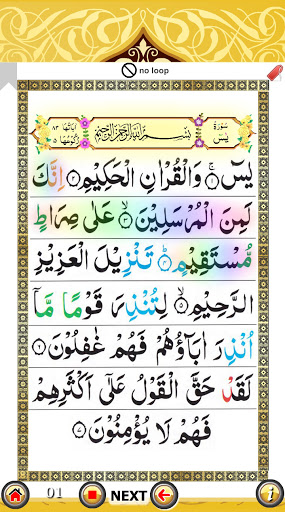 no loop
سُورَةُ يٰسٓ
بِسْمِ اللّٰهِ الرَّحْمٰنِ الرَّحِيْمِ
اٰيَاتُهَا ٨٣
رُكُوْعُهَا ٥
يٰسٓ ۝١ وَالْقُرْاٰنِ الْحَكِيْمِ ۝٢ اِنَّكَ
لَمِنَ الْمُرْسَلِيْنَ ۝٣ عَلٰى صِرَاطٍ
مُّسْتَقِيْمٍ ۝٤ تَنْزِيْلَ الْعَزِيْزِ
الرَّحِيْمِ ۝٥ لِتُنْذِرَ قَوْمًا مَّاۤ
اُنْذِرَ اٰبَاؤُهُمْ فَهُمْ غٰفِلُوْنَ ۝٦
لَقَدْ حَقَّ الْقَوْلُ عَلٰٓى اَكْثَرِهِمْ
فَهُمْ لَا يُؤْمِنُوْنَ ۝٧
01 NEXT i